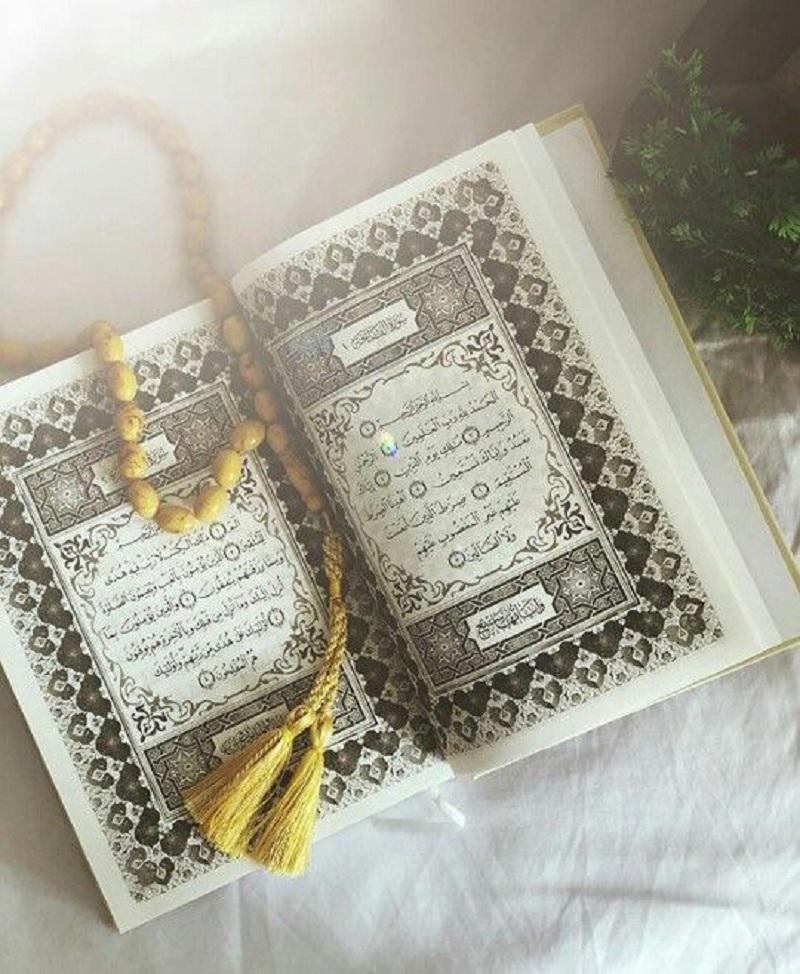 سُورَةُ الفَاتِحَةِ
بِسْمِ اللَّهِ الرَّحْمَٰنِ الرَّحِيمِ ١
الْحَمْدُ لِلَّهِ رَبِّ الْعَالَمِينَ ٢ الرَّحْمَٰنِ
الرَّحِيمِ ٣ مَالِكِ يَوْمِ الدِّينِ ٤ إِيَّاكَ
نَعْبُدُ وَإِيَّاكَ نَسْتَعِينُ ٥ اهْدِنَا الصِّرَاطَ
الْمُسْتَقِيمَ ٦ صِرَاطَ الَّذِينَ أَنْعَمْتَ
عَلَيْهِمْ غَيْرِ الْمَغْضُوبِ عَلَيْهِمْ
وَلَا الضَّالِّينَ ٧
الم ١ ذَٰلِكَ الْكِتَابُ لَا رَيْبَ فِيهِ هُدًى
لِلْمُتَّقِينَ ٢ الَّذِينَ يُؤْمِنُونَ بِالْغَيْبِ وَيُقِيمُونَ الصَّلَاةَ
وَمِمَّا رَزَقْنَاهُمْ يُنْفِقُونَ ٣ وَالَّذِينَ يُؤْمِنُونَ بِمَا
أُنْزِلَ إِلَيْكَ وَمَا أُنْزِلَ مِنْ قَبْلِكَ وَبِالْآخِرَةِ هُمْ يُوقِنُونَ
٤ أُولَٰئِكَ عَلَىٰ هُدًى مِنْ رَبِّهِمْ وَأُولَٰئِكَ
هُمُ الْمُفْلِحُونَ ٥